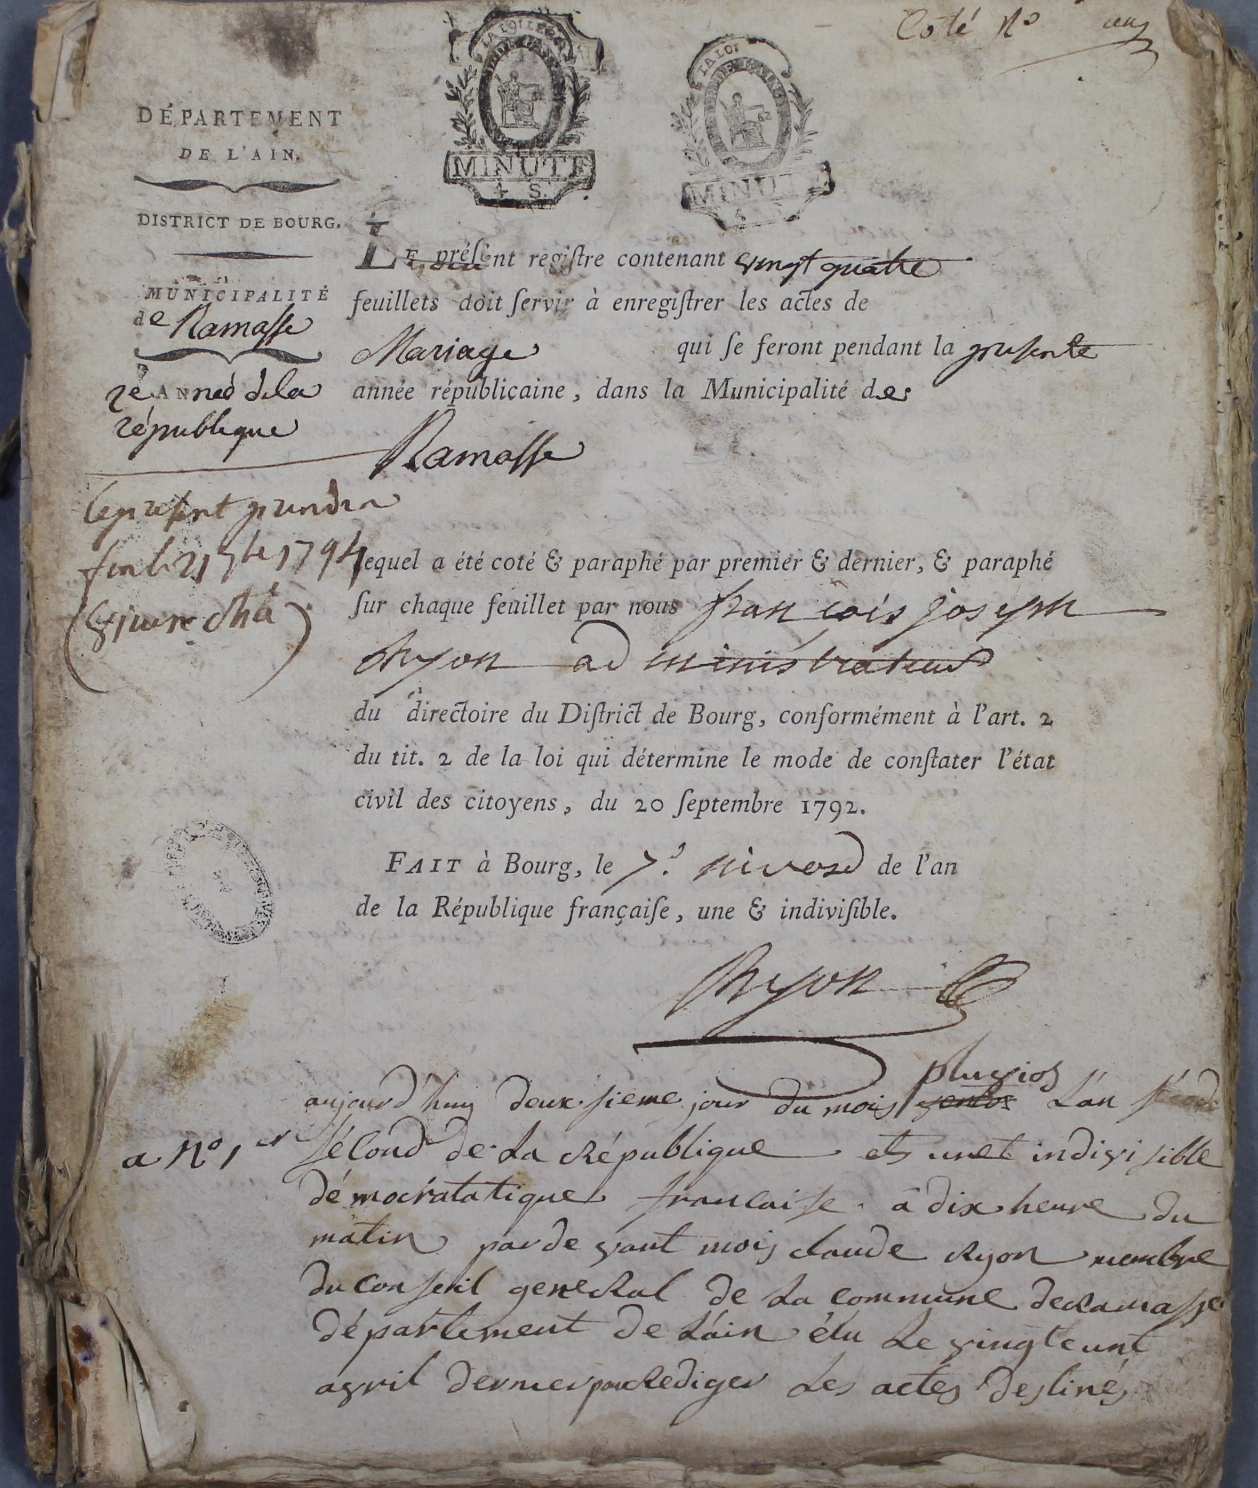 Coté No
LA LOI
MINUTE
4 S.
LA LOI
MINUT
DÉPARTEMENT
DE L'AIN.
DISTRICT DE BOURG.
MUNICIPALITÉ
de Ramasse
2e ANneé de la
république
le present prendra
fin le 21 7bre 1794
LE présent regiſtre contenant vingt quatre
feuillets doit ſervir à enregiſtrer les actes de
Mariage qui ſe feront pendant la presente
année républicaine, dans la Municipalité de
Ramasse
lequel a été coté & paraphé par premier & dernier, & paraphé
ſur chaque feuillet par nous francois joseph
Chyon administrateur
du directoire du Diſtrict de Bourg, conformément à l'art. 2
du tit. 2 de la loi qui détermine le mode de conſtater l'état
civil des citoyens, du 20 ſeptembre 1792.
FAIT à Bourg, le 7. nivose de l'an
de la République françaiſe, une & indiviſible.
Chyon
pluvios
aujourd'huy deuxsieme jour du mois ventos L'an
a No 1er second de La République et unet indivisible
démocratatique francaise à dix heure du
matin pardevant mois claude Ryon membre
du Conseil general de La commune de Ramasse
département de L'ain élu Le vingteunt
avril dernier pour Rediger Les actes destinés